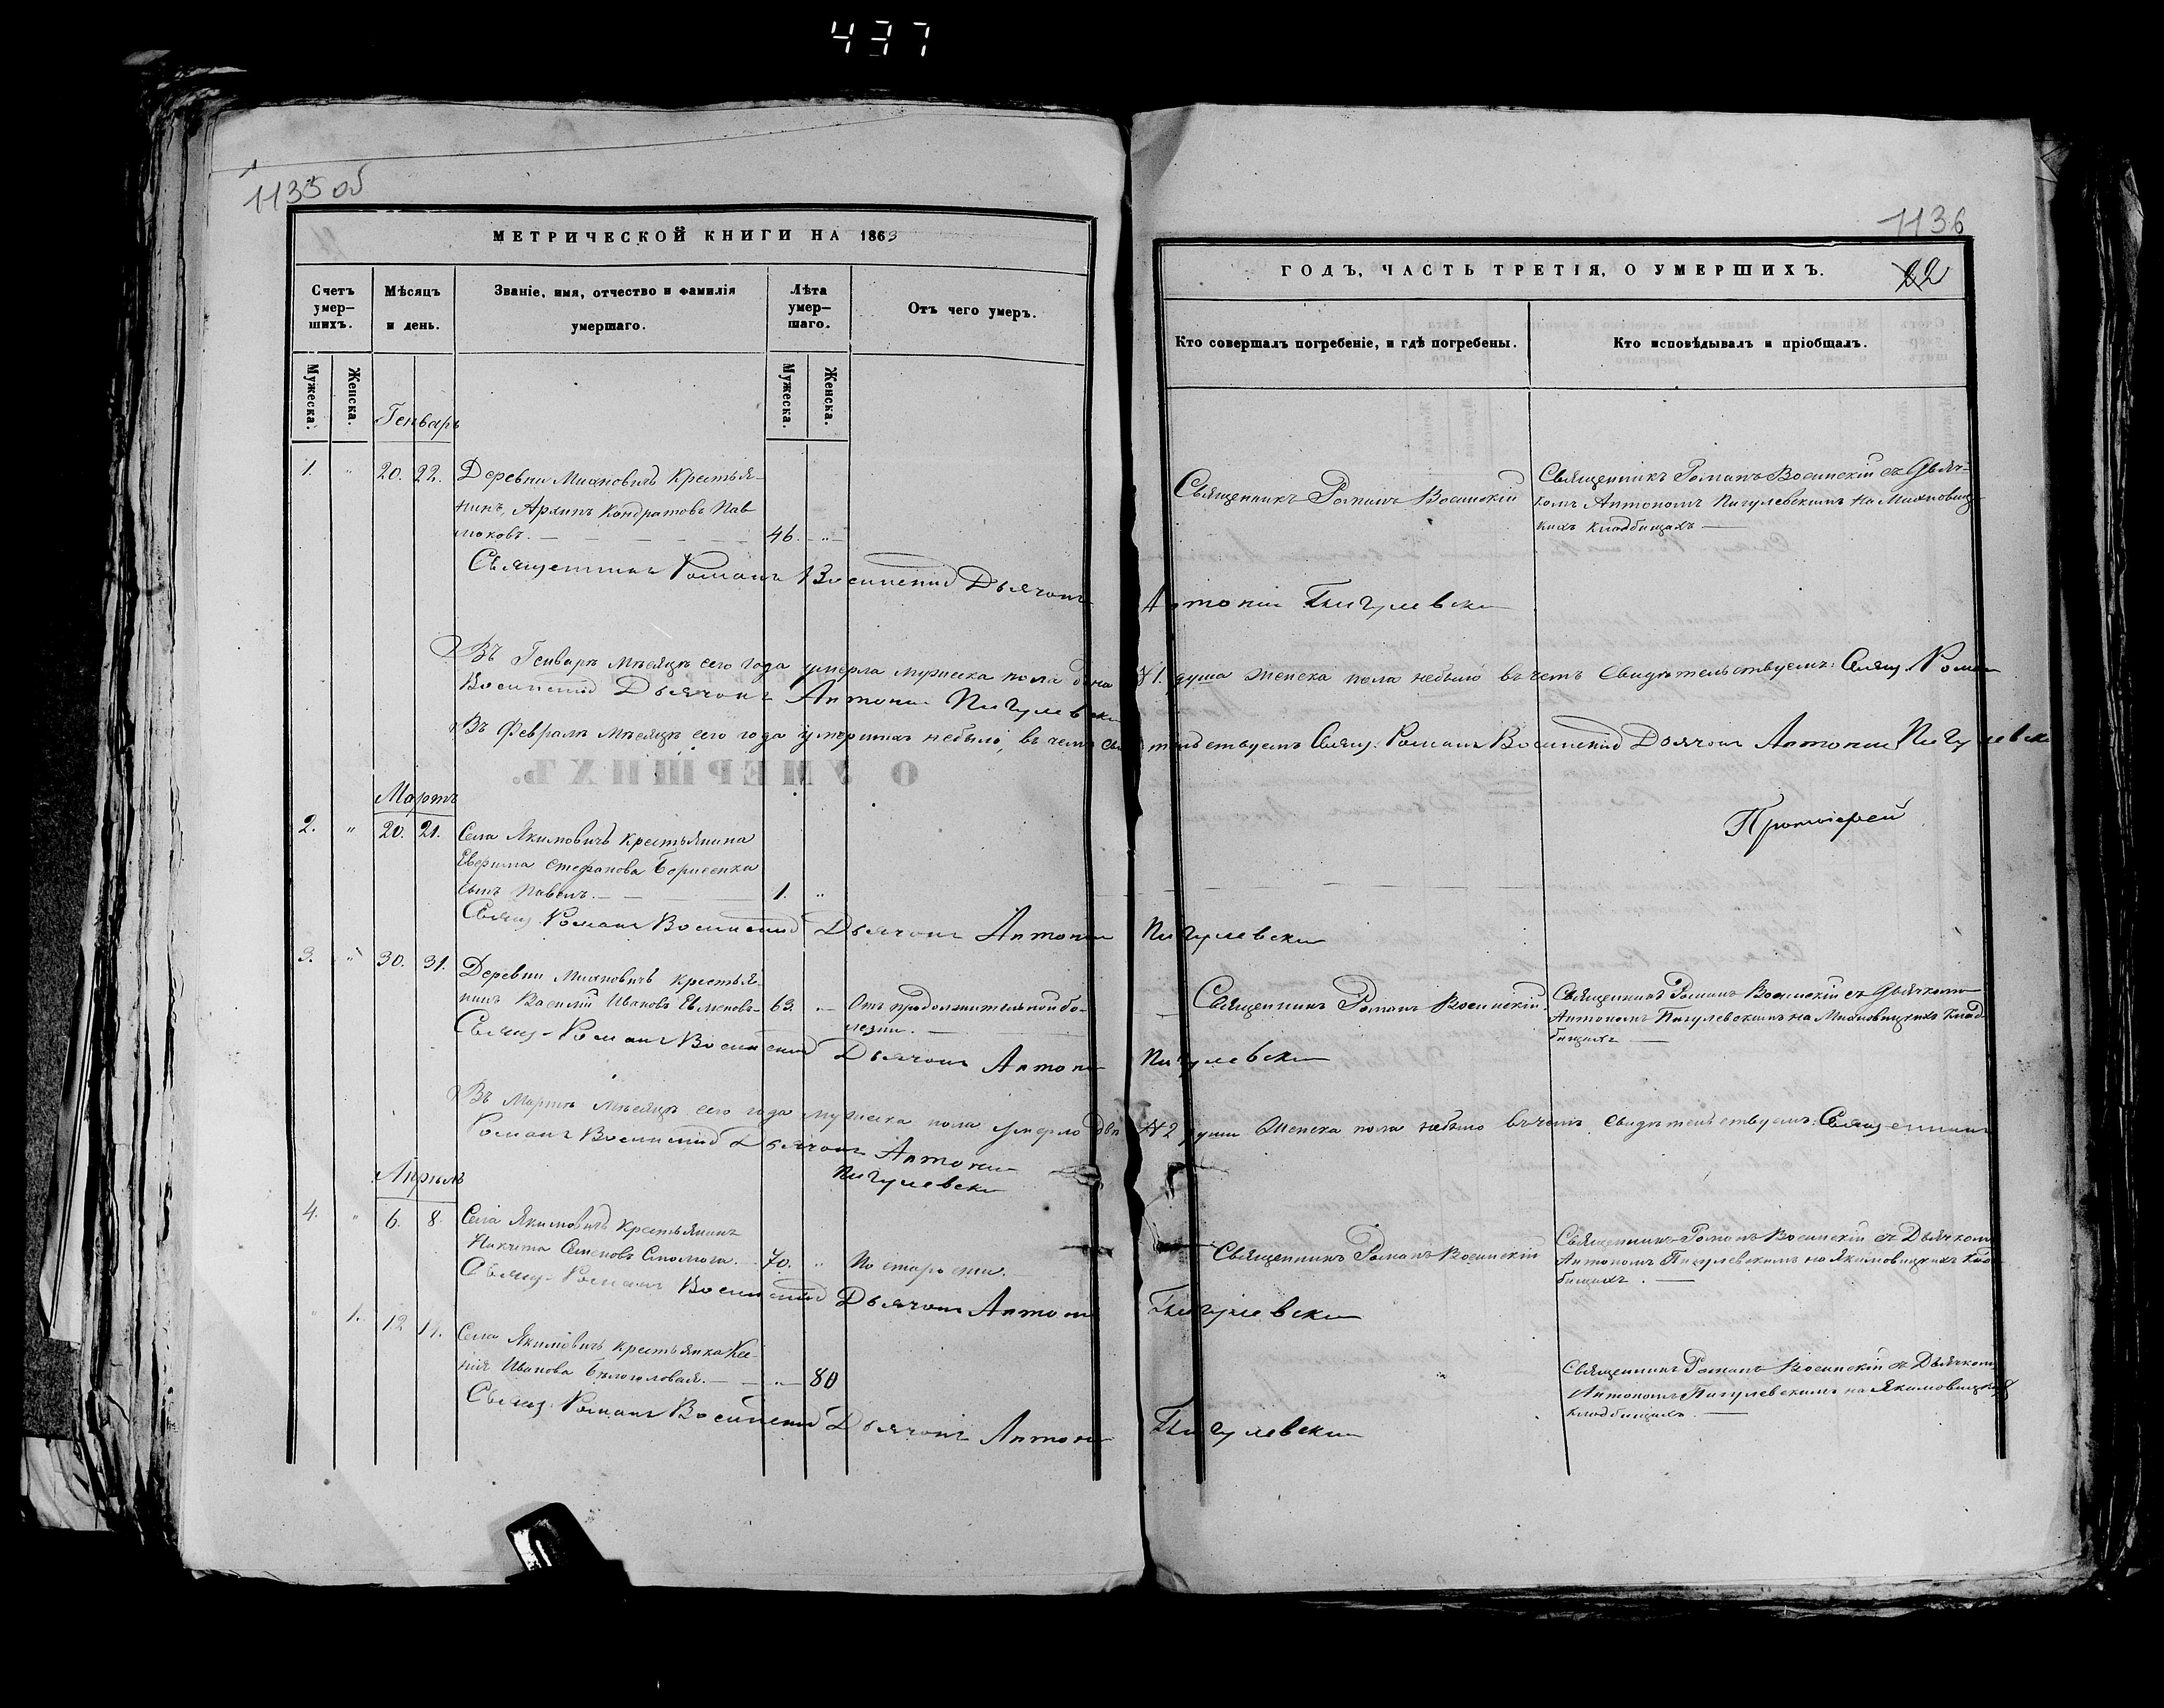 437
1135 об
МЕТРИЧЕСКОЙ КНИГИ НА 1863
Счетъ умер-шихъ.
Мѣсяцъ и день.
Званіе, имя, отчество и фамилія умершаго.
Лѣта умер-шаго.
Отъ чего умеръ.
Мужеска.
Женска.
Мужеска.
Женска.
Генварь
1. " 20. 22. Деревни Михновичъ Крестья-
нинъ, Архипъ Кондратовъ Пав
люковъ. 46. "
Священникъ Романъ Восинскій Дьячокъ
Въ Генварѣ мѣсяцѣ сего года умерла мужеска пола одна
Восинскій Дьячокъ Антоній Пигулевскі
Въ Февралѣ мѣсяцѣ сего года умершихъ небыло, въ чемъ сви
О УМЕРШИХЪ.
Мартъ
2. " 20. 21. Села Якимовичъ крестьянина
Евфима Стефанова Борисенка
сынъ Павелъ. 1. "
Свящ. Романъ Восинскій Дьячокъ Антоній
3. " 30. 31. Деревни Михновичъ крестья-
нинъ Василій Ивановъ 63. " Отъ продолжительной бо-
лезни.
Свящ. Романъ Восинскій Дьячокъ Антоні
Въ Мартѣ мѣсяцѣ сего года мужеска пола умерло двѣ
Романъ Восинскій Дьячокъ Антоній
Пигулевскі
Апрѣль
4. " 6. 8. Села Якимовичъ крестьянинъ
Никита Семеновъ 70. " По старости.
Свящ. Романъ Восинскій Дьячокъ Антоні
" 1. 12 14. Села Якимовичъ крестьянка Ксе-
нія Иванова Бѣлоголовая. " 80
Свящ. Романъ Восинскій Дьячокъ Антоні
1136
ГОДЪ, ЧАСТЬ ТРЕТІЯ, О УМЕРШИХЪ.
22
Кто совершалъ погребеніе, и гдѣ погребены.
Кто исповѣдывалъ и пріобщалъ.
Священникъ Романъ Восинскій
Священникъ Романъ Восинскій съ Дьяч-
комъ Антономъ Пигулевскимъ на Михновиц-
кихъ кладбищахъ
Антоній Пигулевскі
№ 1. душа женска пола небыло въ чемъ свидѣтельствуемъ: Свящ. Романъ
тельствуемъ Свящ: Романъ Восинскій Дьячокъ Антоній Пигулевскі
Протоіерей
Пигулевскі
Священникъ Романъ Восинскій
Священникъ Романъ Восинскій съ Дьячкомъ
Антономъ Пигулевскимъ на Михновицкихъ клад-
бищахъ
Пигулевскі
№ 2 души женска пола небыло въ чемъ свидѣтельствуемъ: Священникъ
Священникъ Романъ Восинскій
Священникъ Романъ Восинскій съ Дьячкомъ
Антономъ Пигулевскимъ на Якимовицкихъ клад
бищахъ.
Пигулевскі
Священникъ Романъ Восинскій съ Дьячкомъ
Антономъ Пигулевскимъ на Якимовицкихъ
кладбищахъ.
Пигулевскі